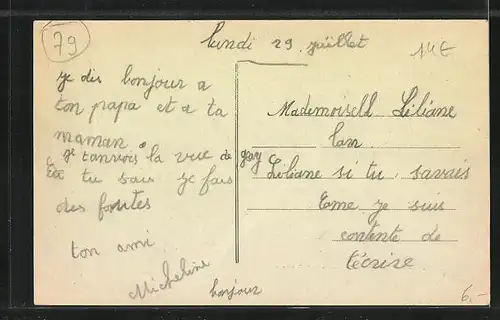 79
lundi 29 juillet
14 €
je dis bonjour a
ton papa et a ta
maman.
je tanvois la vue de gay
tu sau je fais
des fontes
ton ami
Micheline
bonjour
Mademoiselle Liliane
lan
Liliane si tu savais
come je suis
contente de
técrire
6.-